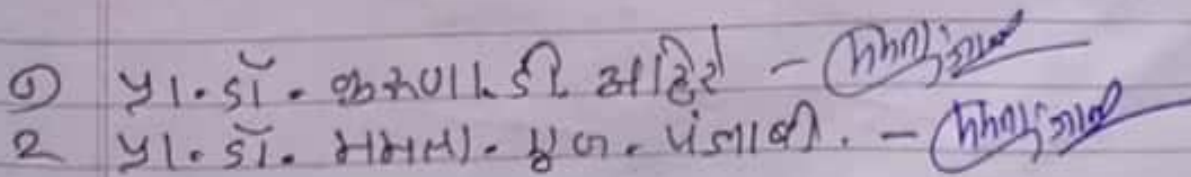 ૧ પ્રા. ડૉ. કરુણા. ડી. આહિરે -
૨ પ્રા. ડૉ. મમતા. એન. પંજાબી. -